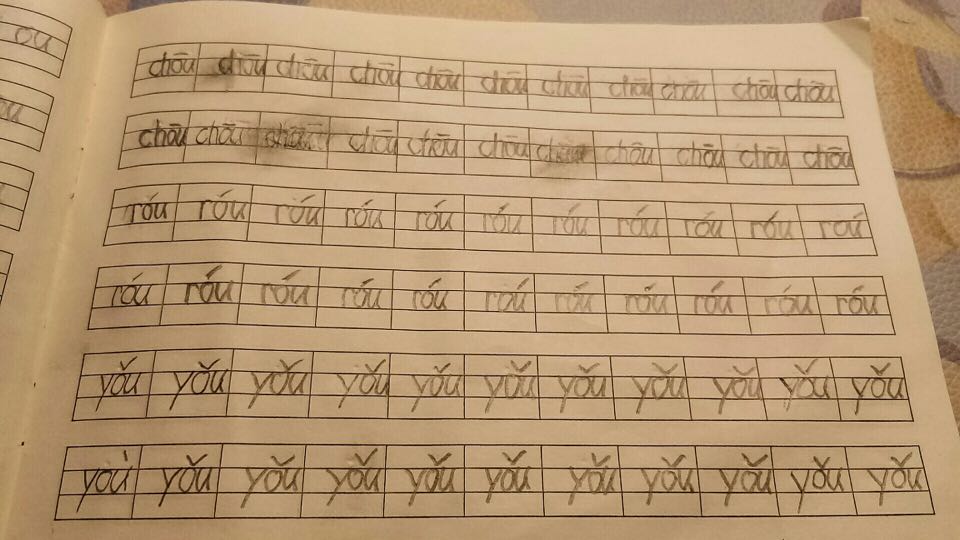 chōu chōu chōu chōu chōu chōu chōu chōu chōu chōu chōu
chōu chōu chōu chōu chōu chōu chōu chōu chōu chōu chōu
róu róu róu róu róu róu róu róu róu róu róu
róu róu róu róu róu róu róu róu róu róu róu
yǒu yǒu yǒu yǒu yǒu yǒu yǒu yǒu yǒu yǒu yǒu
yoù yǒu yǒu yǒu yǒu yǒu yǒu yǒu yǒu yǒu yǒu